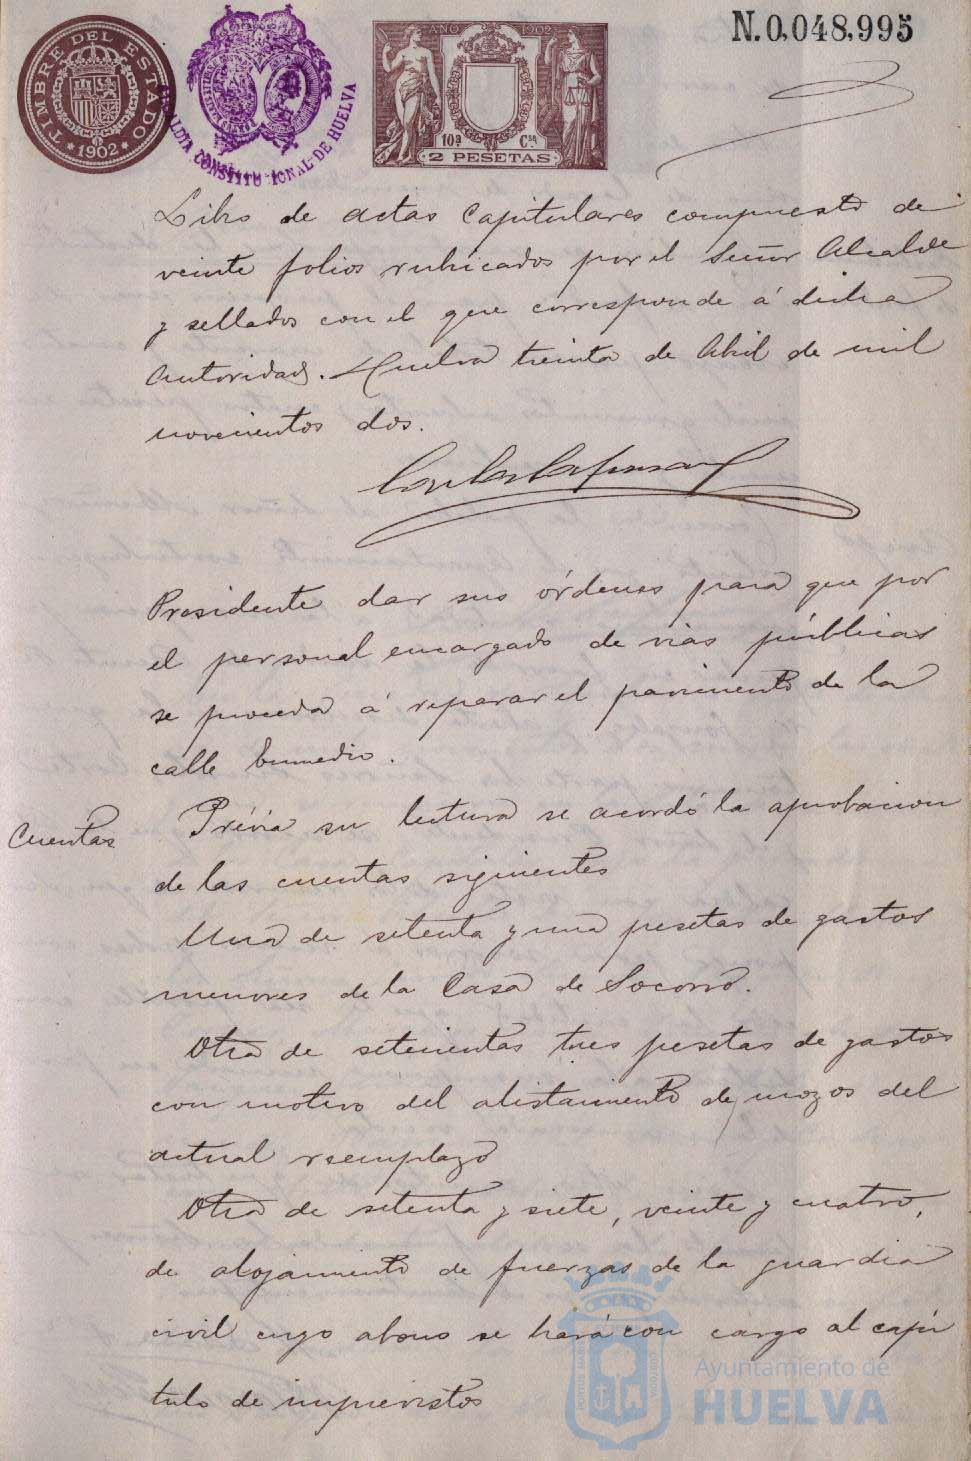 TIMBRE DEL ESTADO
*1902*
ALCALDIA CONSTITUCIONAL DE HUELVA
AÑO 1902
10ª Cse
2 PESETAS
N.0,048,995
Libro de actas Capitulares compuesto de
veinte folios rubricados por el Señor Alcalde
y sellados con el que corresponde á dicha
Autoridad. Huelva treinta de Abril de mil
novecientos dos.
Presidente dar sus órdenes para que por
el personal encargado de vias públicas
se proceda á reparar el pavimento de la
calle Enmedio.
Cuentas
Prévia su lectura se acordó la aprobacion
de las cuentas siguientes
Una de setenta y una pesetas de gastos
menores de la Casa de Socorro.
Otra de setecientas tres pesetas de gastos
con motivo del alistamiento de mozos del
actual reemplazo
Otra de setenta y siete, veinte y cuatro,
de alojamiento de fuerzas de la guardia
civil cuyo abono se hará con cargo al capí
tulo de imprevistos
Ayuntamiento de
HUELVA